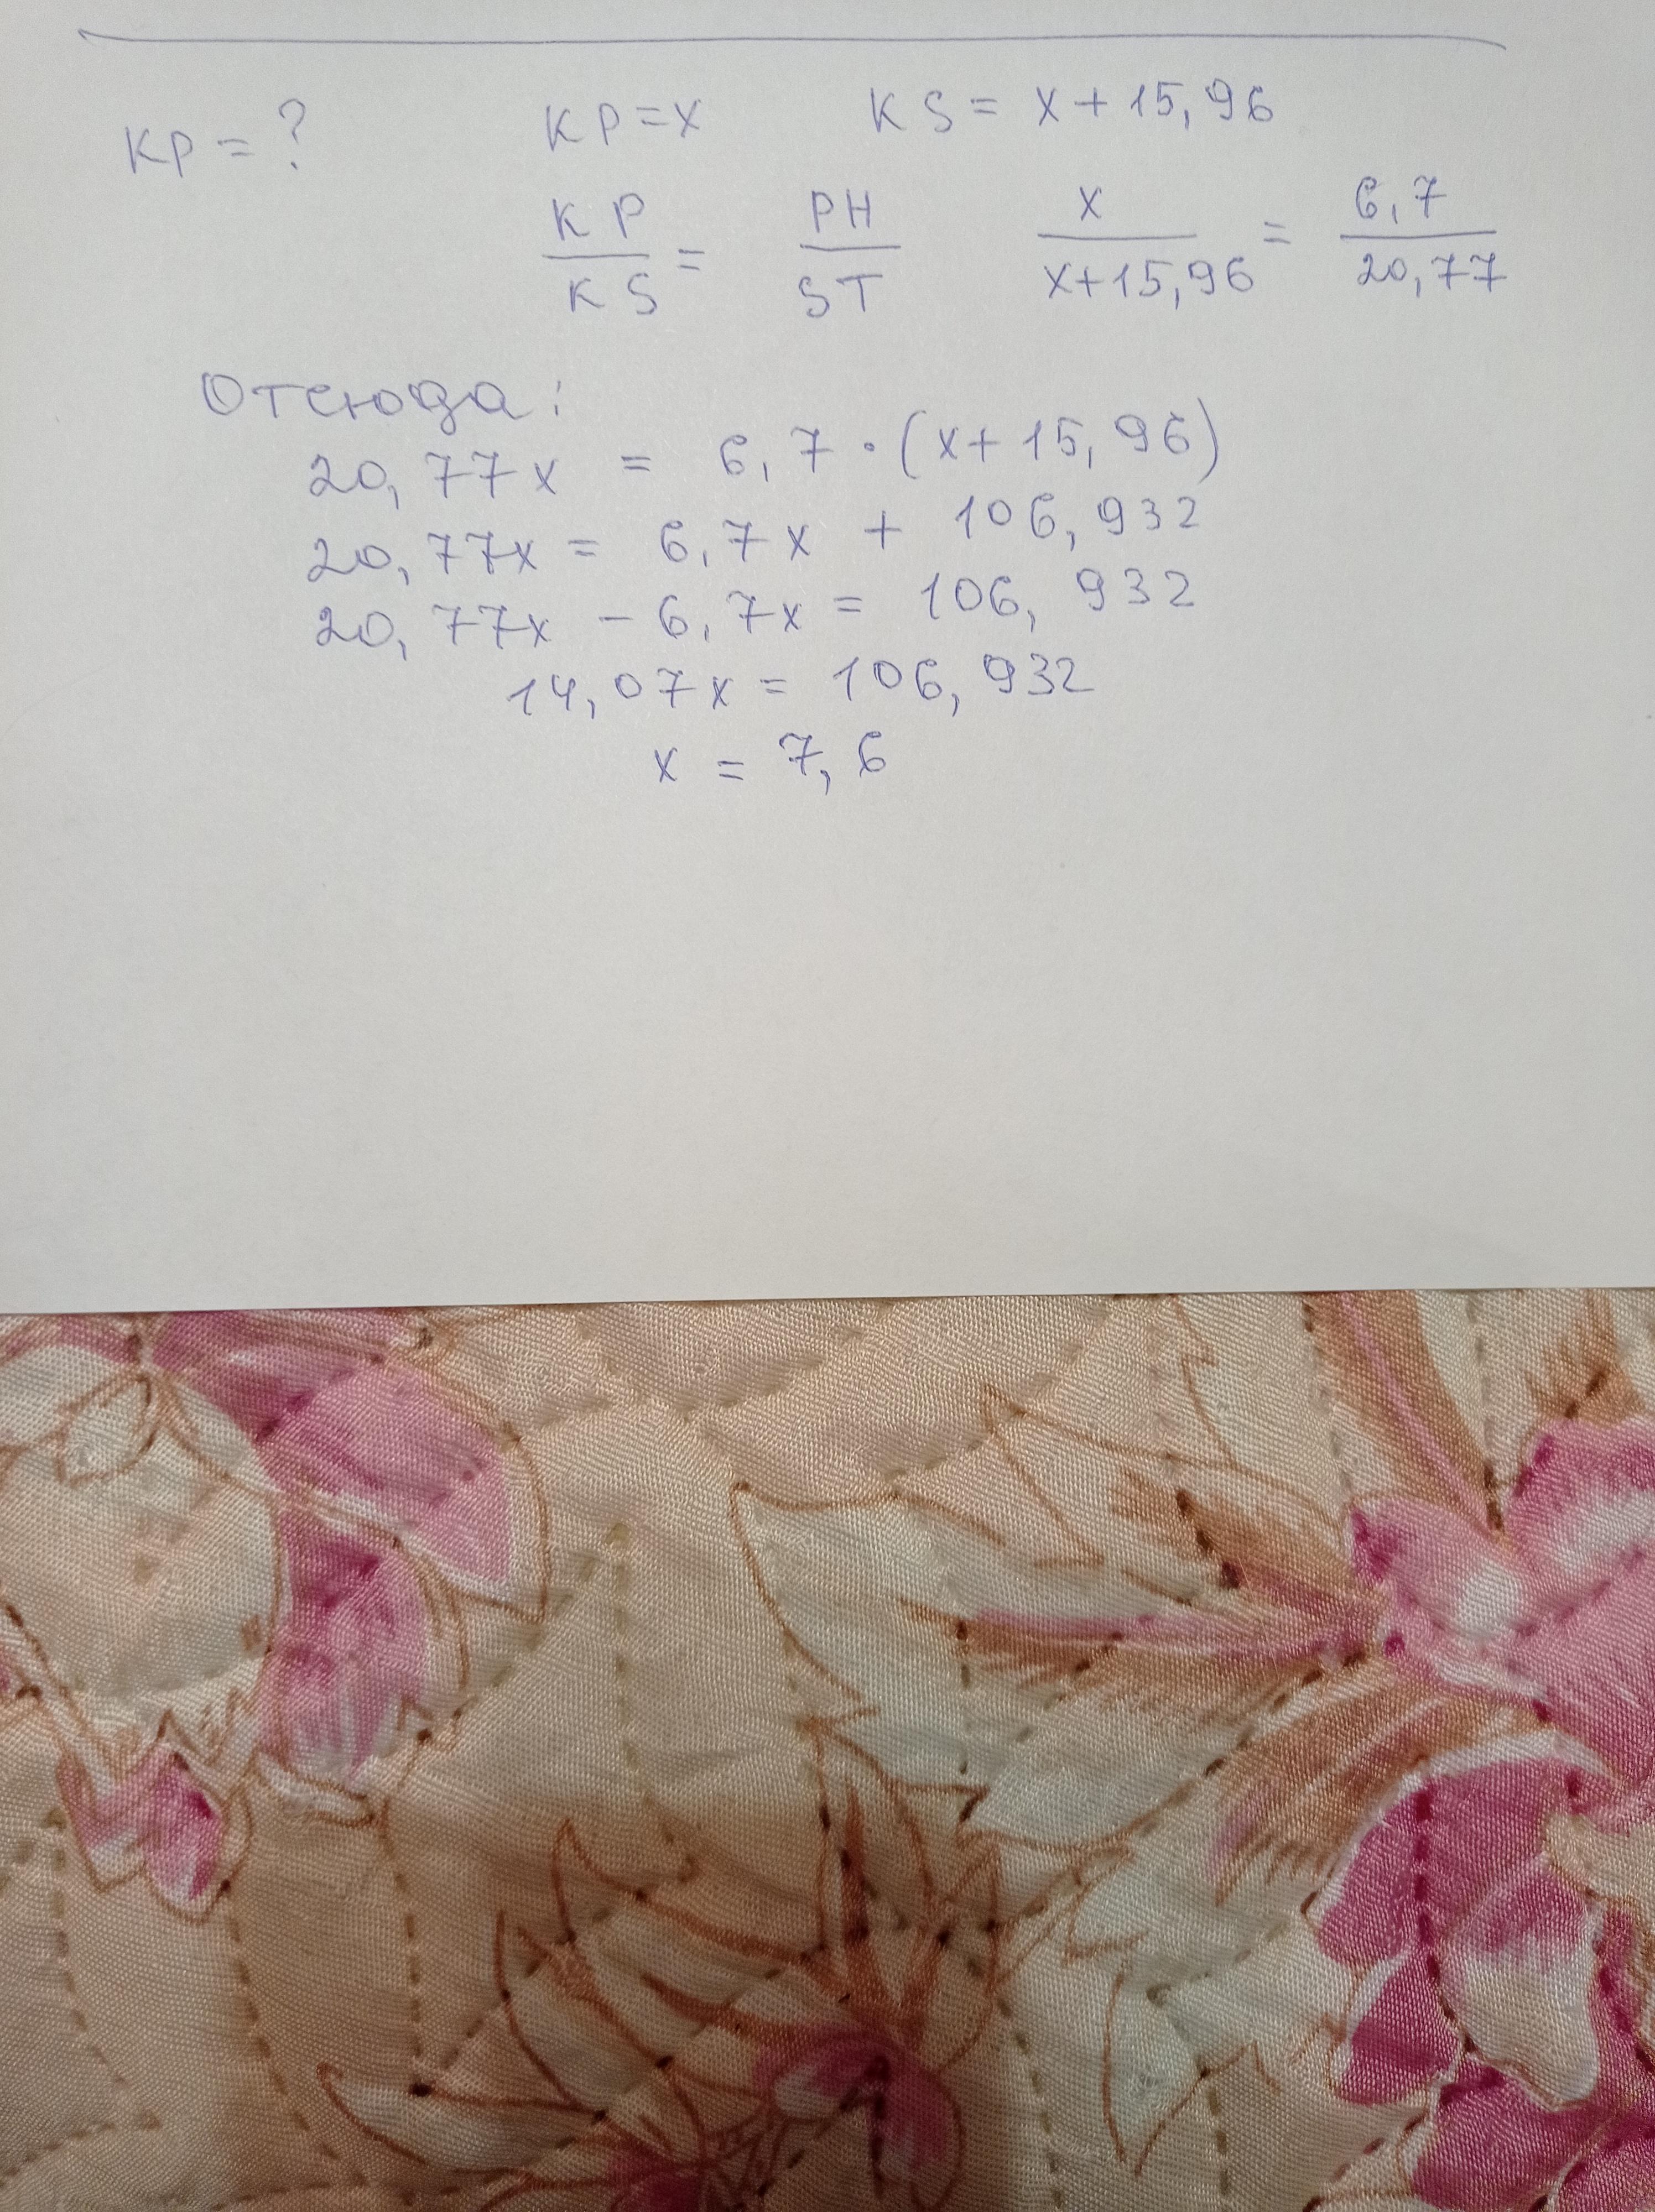 KP = ? KP = x KS = x + 15,96
KP/KS = PH/ST x/x+15,96 = 6,7/20,77
Отсюда:
20,77x = 6,7 · (x + 15,96)
20,77x = 6,7x + 106,932
20,77x - 6,7x = 106,932
14,07x = 106,932
x = 7,6